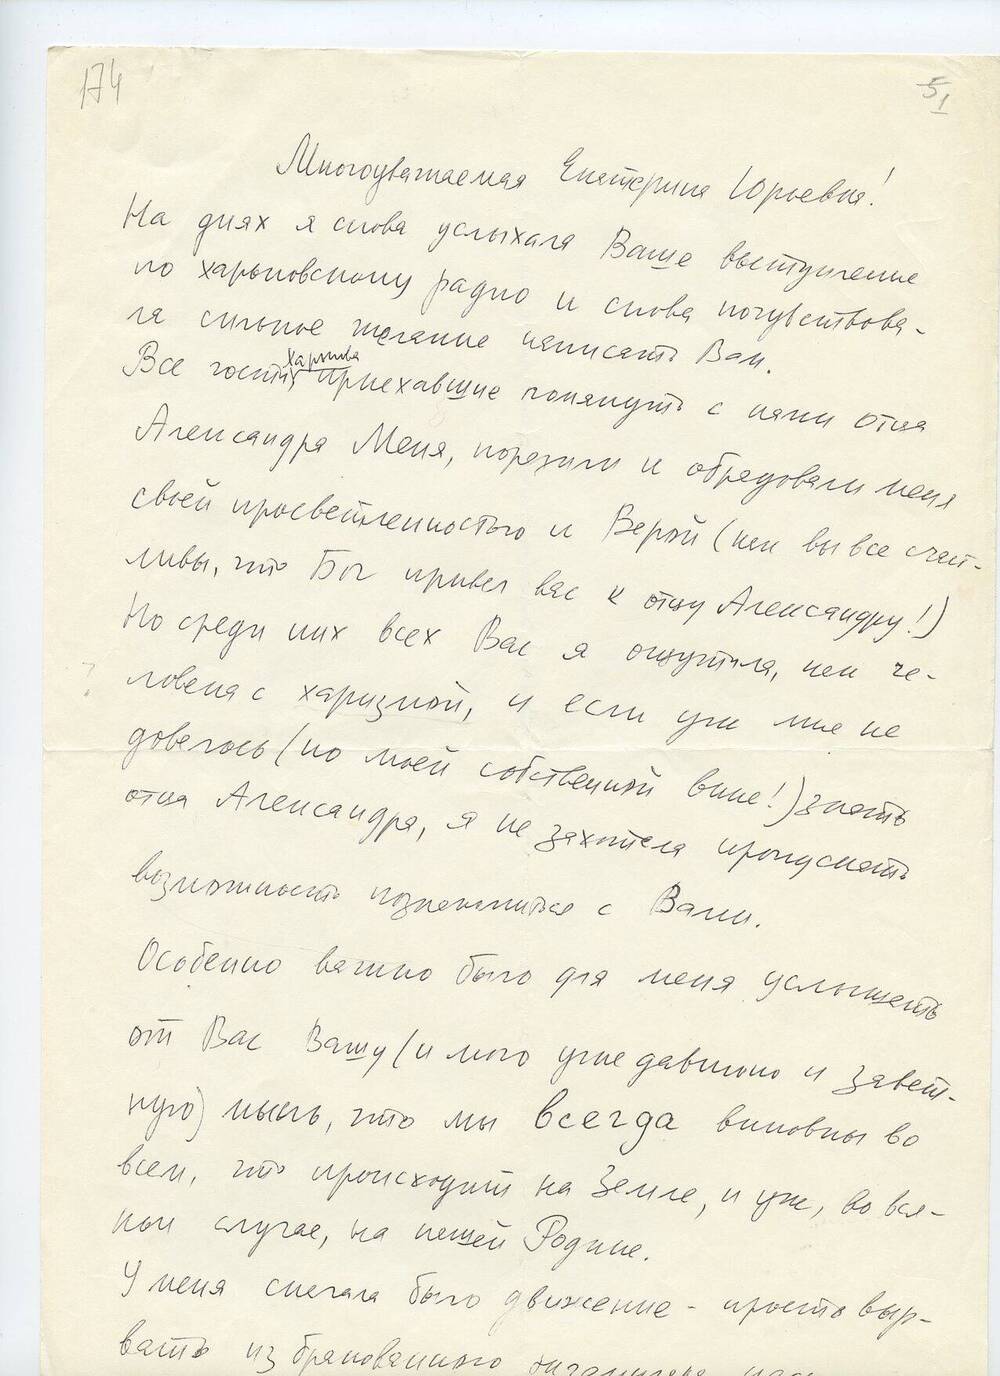 174
5
1
Многоуважаемая Екатерина Юрьевна!
На днях я снова услыхала Ваше выступление
по харьковскому радио и снова почувствова-
ла сильное желание написать Вам.
Харькова
Все гости, приехавшие помянуть с нами отца
Александра Меня, поразили и обрадовали меня
своей просветленностью и Верой (как вы все счаст-
ливы, что Бог привел вас к отцу Александру!)
Но среди них всех Вас я ощутила, как че-
ловека с харизмой, и если уж мне не
довелось (по моей собственной вине!) знать
отца Александра, я не захотела пропускать
возможность познакомиться с Вами.
Особенно важно было для меня услышать
от Вас Вашу (и мою уже давнюю и завет-
ную) мысль, что мы всегда виновны во
всем, что происходит на Земле, и уж, во вся-
ком случае, на нашей Родине.
У меня сначала было движение - просто выр-
вать из бракованного экземпляра